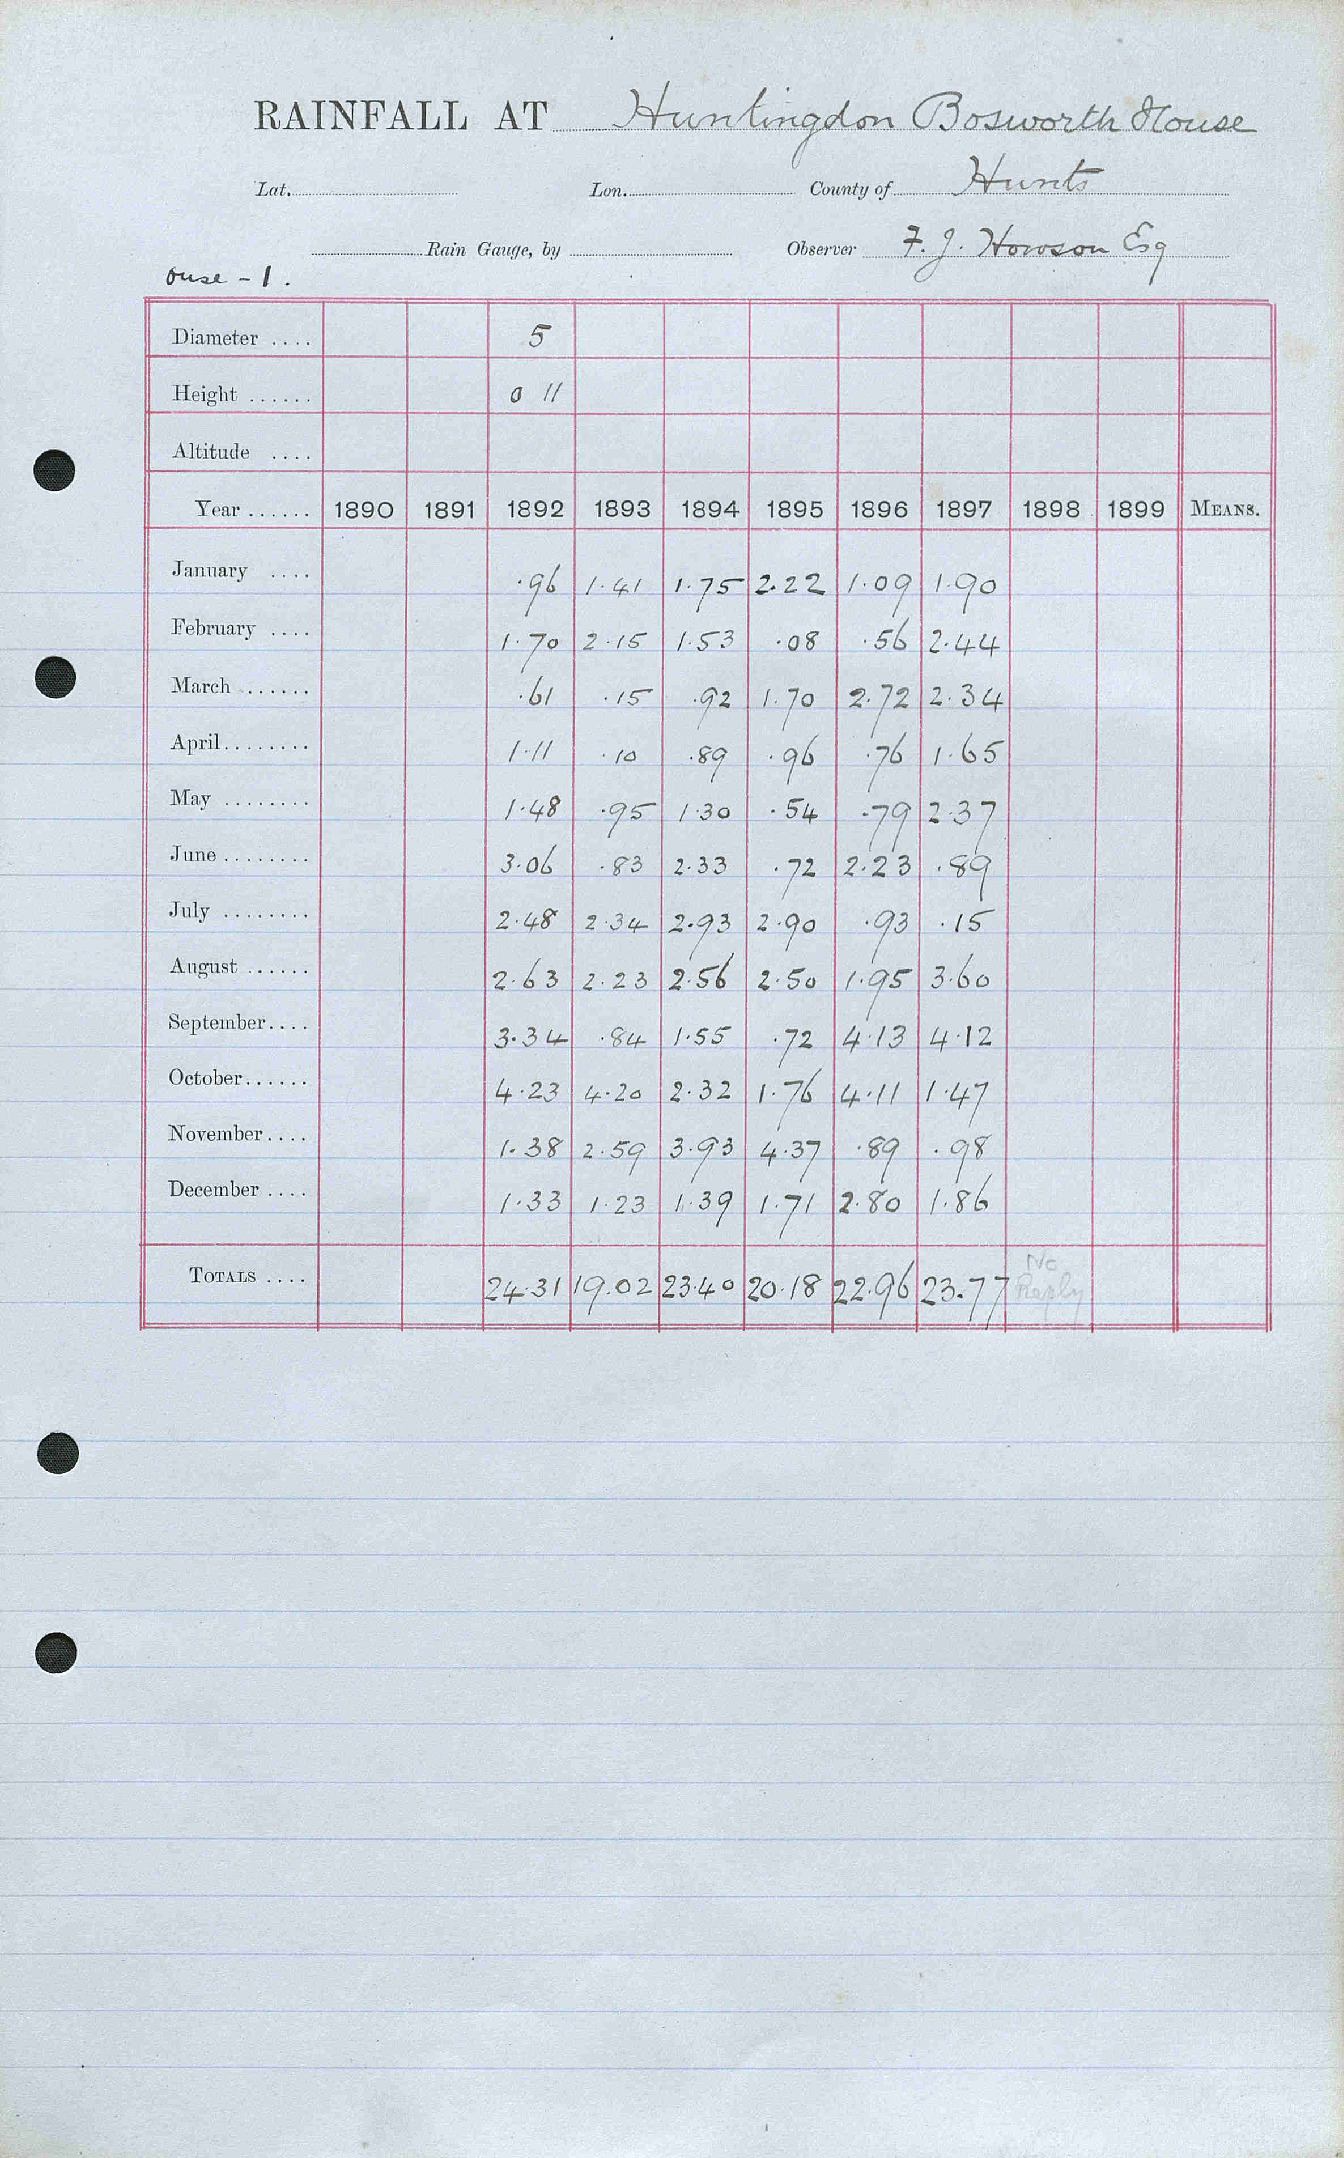 RAINFALL AT Huntingdon Bosworth House
Lat. Lon. County of Hunts
Rain Gauge, by Observer F. J. Howson Esq
ouse - 1.
Diameter .... 5
Height ...... 0 11
Altitude ....
Year ...... 1890 1891 1892 1893 1894 1895 1896 1897 1898 1899 MEANS.
January .... .96 1.41 1.75 2.22 1.09 1.90
February .... 1.70 2.15 1.53 .08 .56 2.44
March ...... .61 .15 .92 1.70 2.72 2.34
April........ 1.11 .10 .89 .96 .76 1.65
May ........ 1.48 .95 1.30 .54 .79 2.37
June ........ 3.06 .83 2.33 .72 2.23 .89
July ........ 2.48 2.34 2.93 2.90 .93 .15
August ...... 2.63 2.23 2.56 2.50 1.95 3.60
September.... 3.34 .84 1.55 .72 4.13 4.12
October...... 4.23 4.20 2.32 1.76 4.11 1.47
November.... 1.38 2.59 3.93 4.37 .89 .98
December .... 1.33 1.23 1.39 1.71 2.80 1.86
TOTALS .... 24.31 19.02 23.40 20.18 22.96 23.77 No Reply